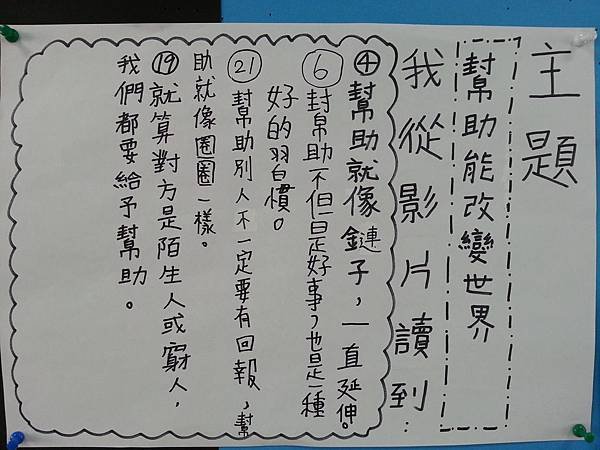 主題
幫助能改變世界
我從影片讀到：
④幫助就像鏈子，一直延伸。
⑥幫助不但是好事，也是一種
好的習慣。
㉑幫助別人不一定要有回報，幫
助就像圈圈一樣。
⑲就算對方是陌生人或窮人，
我們都要給予幫助。